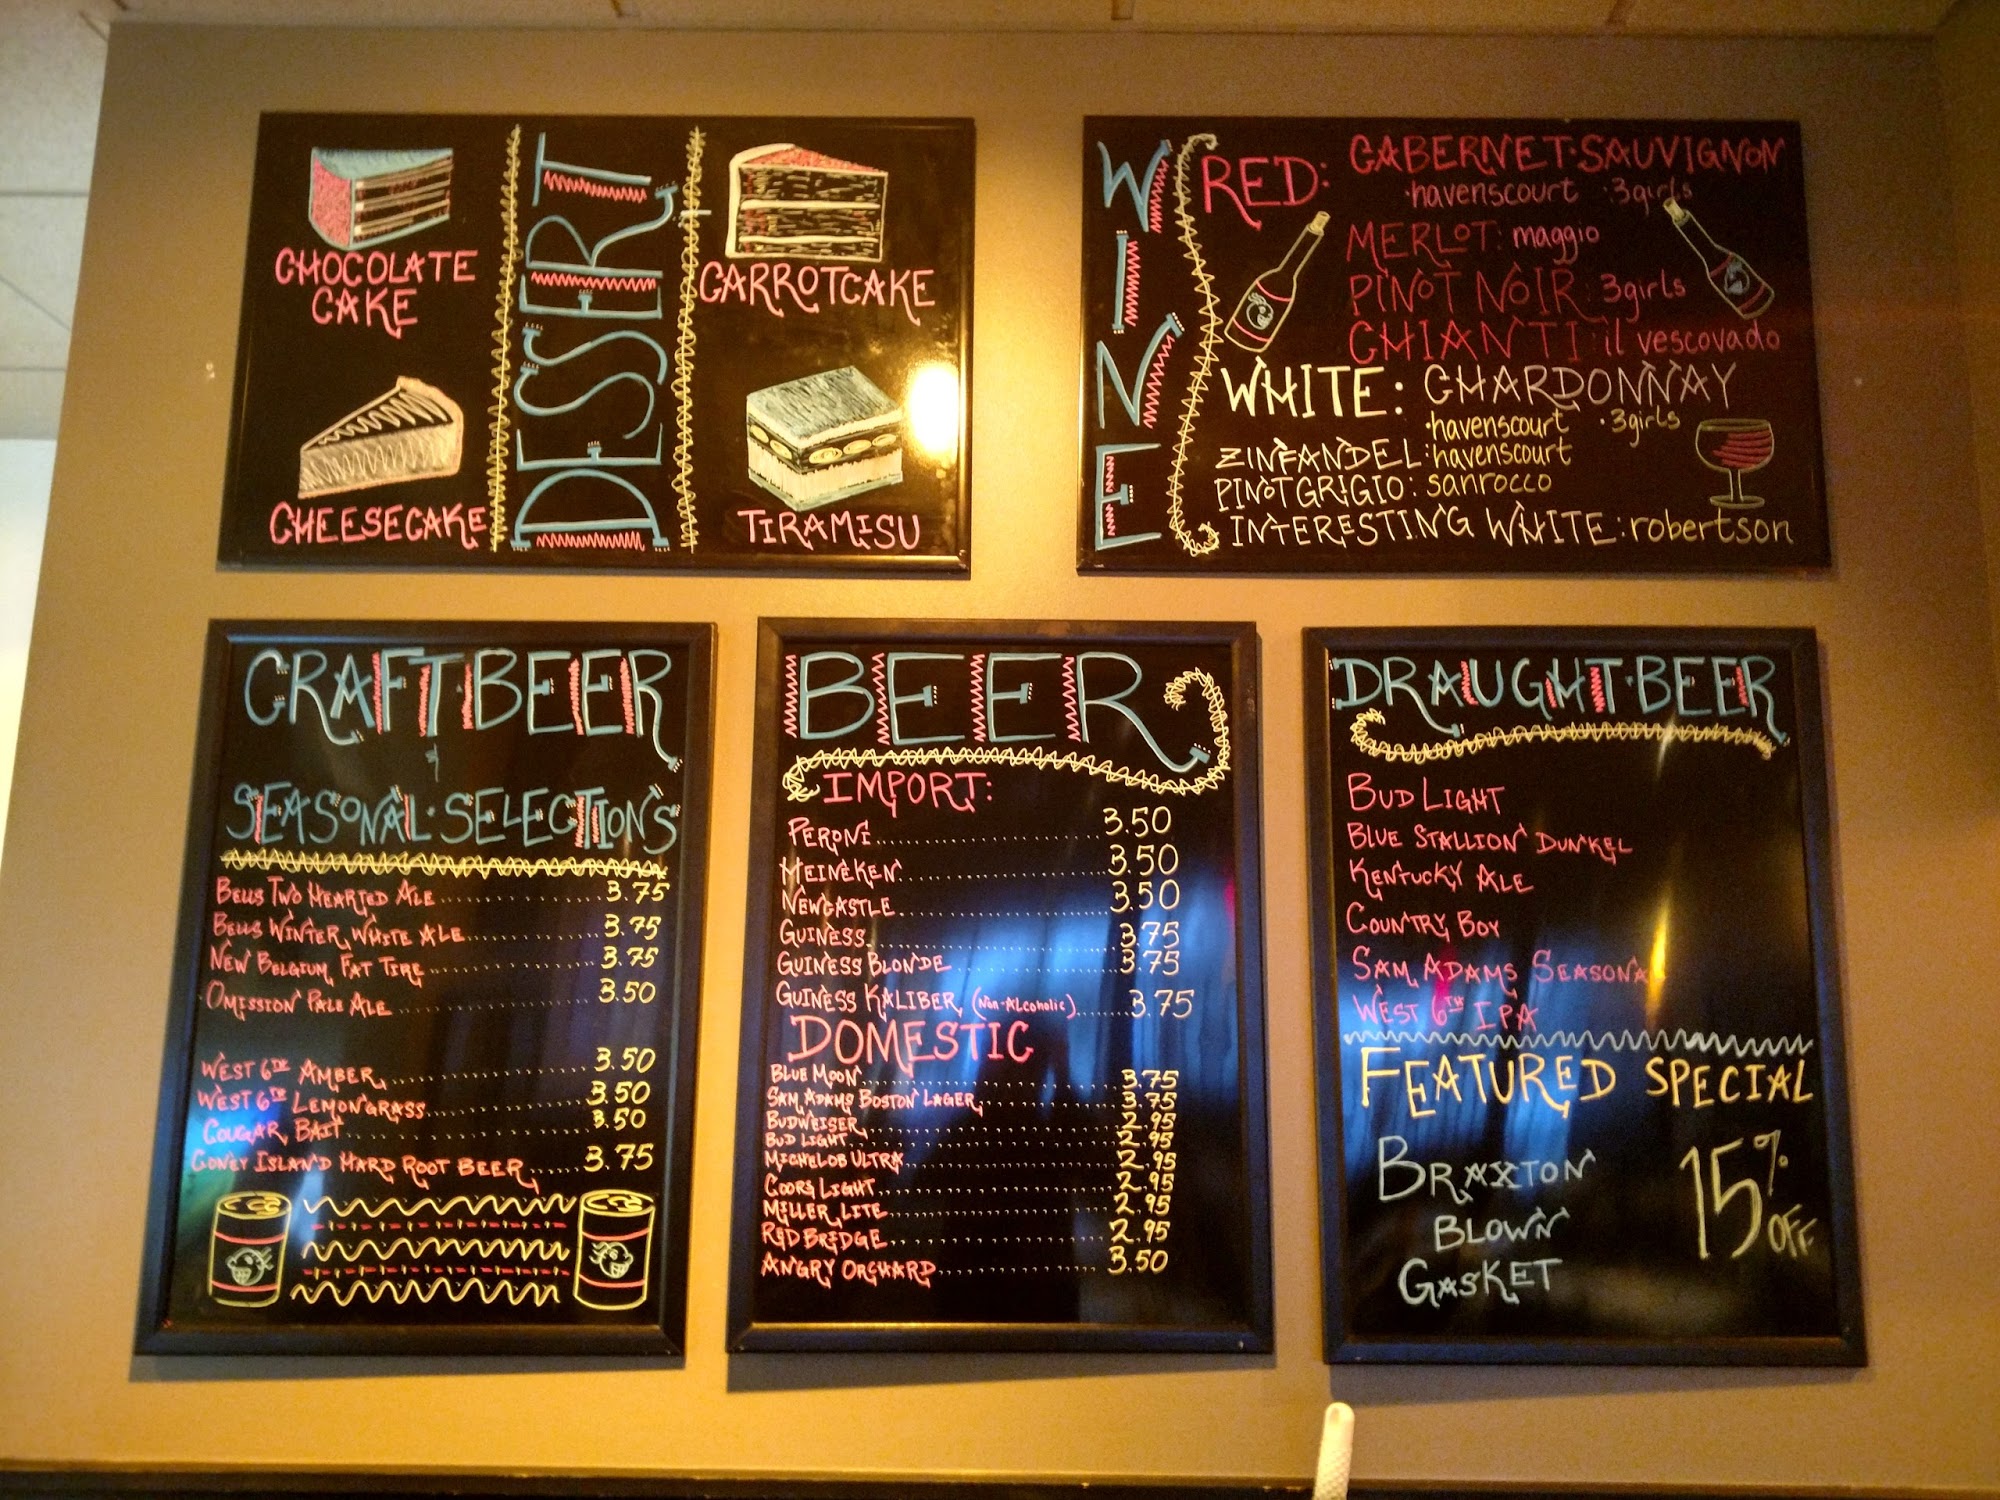 DESSERT
CHOCOLATE
CAKE
CARROTCAKE
CHEESECAKE
TIRAMISU
WINE
RED: CABERNET·SAUVIGNON
·havenscourt ·3girls
MERLOT: maggio
PINOT NOIR: 3girls
CHIANTI: il vescovado
WHITE: CHARDONNAY
·havenscourt ·3girls
ZINFANDEL: havenscourt
PINOT GRIGIO: sanrocco
INTERESTING WHITE: robertson
CRAFT BEER
&
SEASONAL·SELECTIONS
BELLS TWO HEARTED ALE 3.75
BELLS WINTER WHITE ALE 3.75
NEW BELGIUM FAT TIRE 3.75
OMISSION PALE ALE 3.50
WEST 6TH AMBER 3.50
WEST 6TH LEMONGRASS 3.50
COUGAR BAIT 3.50
CONEY ISLAND HARD ROOT BEER 3.75
BEER
IMPORT:
PERONI 3.50
HEINEKEN 3.50
NEWCASTLE 3.50
GUINESS 3.75
GUINESS BLONDE 3.75
GUINESS KALIBER (NON-ALCOHOLIC) 3.75
DOMESTIC
BLUE MOON 3.75
SAM ADAMS BOSTON LAGER 3.75
BUDWEISER 2.95
BUD LIGHT 2.95
MICHELOB ULTRA 2.95
COORS LIGHT 2.95
MILLER LITE 2.95
RED BRIDGE 2.95
ANGRY ORCHARD 3.50
DRAUGHT·BEER
BUD LIGHT
BLUE STALLION DUNKEL
KENTUCKY ALE
COUNTRY BOY
SAM ADAMS SEASONAL
WEST 6TH IPA
FEATURED SPECIAL
BRAXTON
BLOWN
GASKET
15% OFF